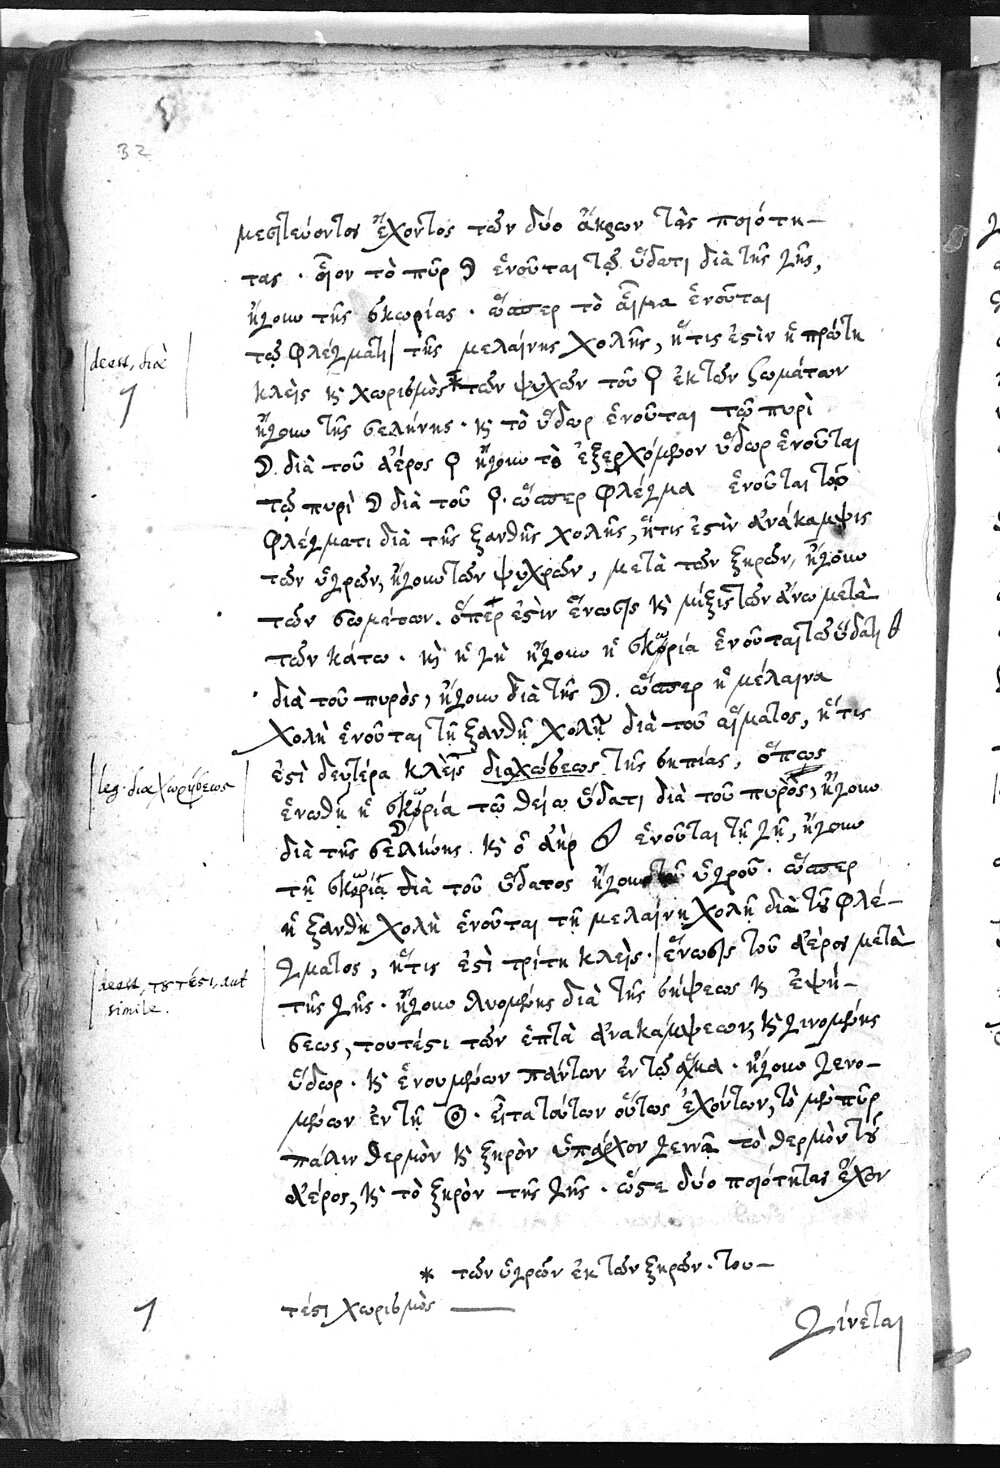 32
μεσιτεύοντος ἔχοντος τῶν δύο ἄκρων τὰς ποιότη-
τας · οἷον τὸ πῦρ ☽ ἑνοῦται τῷ ὕδατι διὰ τῆς γῆς,
ἤγουν τῆς σκωρίας · ὥσπερ τὸ αἷμα ἑνοῦται
τῷ φλέγματι / τῆς μελαίνης χολῆς, ἥτις ἐστὶν ἡ πρώτη
deest, διὰ
κλεὶς καὶ χωρισμὸς * τῶν ψυχῶν τοῦ ♀ ἐκ τῶν σωμάτων
ἤγουν τῆς σελήνης · καὶ τὸ ὕδωρ ἑνοῦται τῷ πυρὶ
☽. διὰ τοῦ ἀέρος ♀ ἤγουν τὸ ἐξερχόμενον ὕδωρ ἑνοῦται
τῷ πυρὶ ☽ διὰ τοῦ ♀. ὥσπερ φλέγμα ἑνοῦται τῷ
φλέγματι διὰ τῆς ξανθῆς χολῆς, ἥτις ἐστὶν ἀνάκαμψις
τῶν ὑγρῶν, ἤγουν τῶν ψυχρῶν, μετὰ τῶν ξηρῶν, ἤγουν
τῶν σωμάτων. ὅπερ ἐστὶν ἕνωσις καὶ μίξις τῶν ἄνω μετὰ
τῶν κάτω · καὶ ἡ γῆ ἤγουν ἡ σκωρία ἑνοῦται τῷ ὕδατι
διὰ τοῦ πυρὸς, ἤγουν διὰ τῆς ☽. ὥσπερ ἡ μέλαινα
χολὴ ἑνοῦται τῇ ξανθῇ χολῇ διὰ τοῦ αἵματος, ἥτις
ἐστὶ δευτέρα κλεὶς διαχώσεως τῆς σηπίας, ὅπως
leg. διαχωρήσεως
ἑνωθῇ ἡ σκωρία τῷ θείῳ ὕδατι διὰ τοῦ πυρὸς, ἤγουν
διὰ τῆς σελήνης. καὶ ὁ ἀὴρ ἑνοῦται τῇ γῇ, ἤγουν
τῇ σκωρίᾳ διὰ τοῦ ὕδατος ἤγουν τοῦ ὑγροῦ · ὥσπερ
ἡ ξανθὴ χολὴ ἑνοῦται τῇ μελαίνῃ χολῇ διὰ τοῦ φλέ-
γματος, ἥτις ἐστὶ τρίτη κλεὶς · / ἕνωσις τοῦ ἀέρος μετὰ
deest, τουτέστι, aut
simile.
τῆς γῆς · ἤγουν λυομένης διὰ τῆς σήψεως καὶ ἑψή-
σεως, τουτέστι τῶν ἑπτὰ ἀνακάμψεων, καὶ γινομένης
ὕδωρ · καὶ ἑνουμένων πάντων ἐν τῷ ἅμα · ἤγουν γενο-
μένων ἐν τῇ ☉. εἶτα τούτων οὕτως ἐχόντων, τὸ μὲν πῦρ
πάλιν θερμὸν καὶ ξηρὸν ὑπάρχον γεννᾷ τὸ θερμὸν τοῦ
ἀέρος, καὶ τὸ ξηρὸν τῆς γῆς · ὥστε δύο ποιότητας ἔχον
* τῶν ὑγρῶν ἐκ τῶν ξηρῶν · του-
τέστι χωρισμὸς —
γίνεται